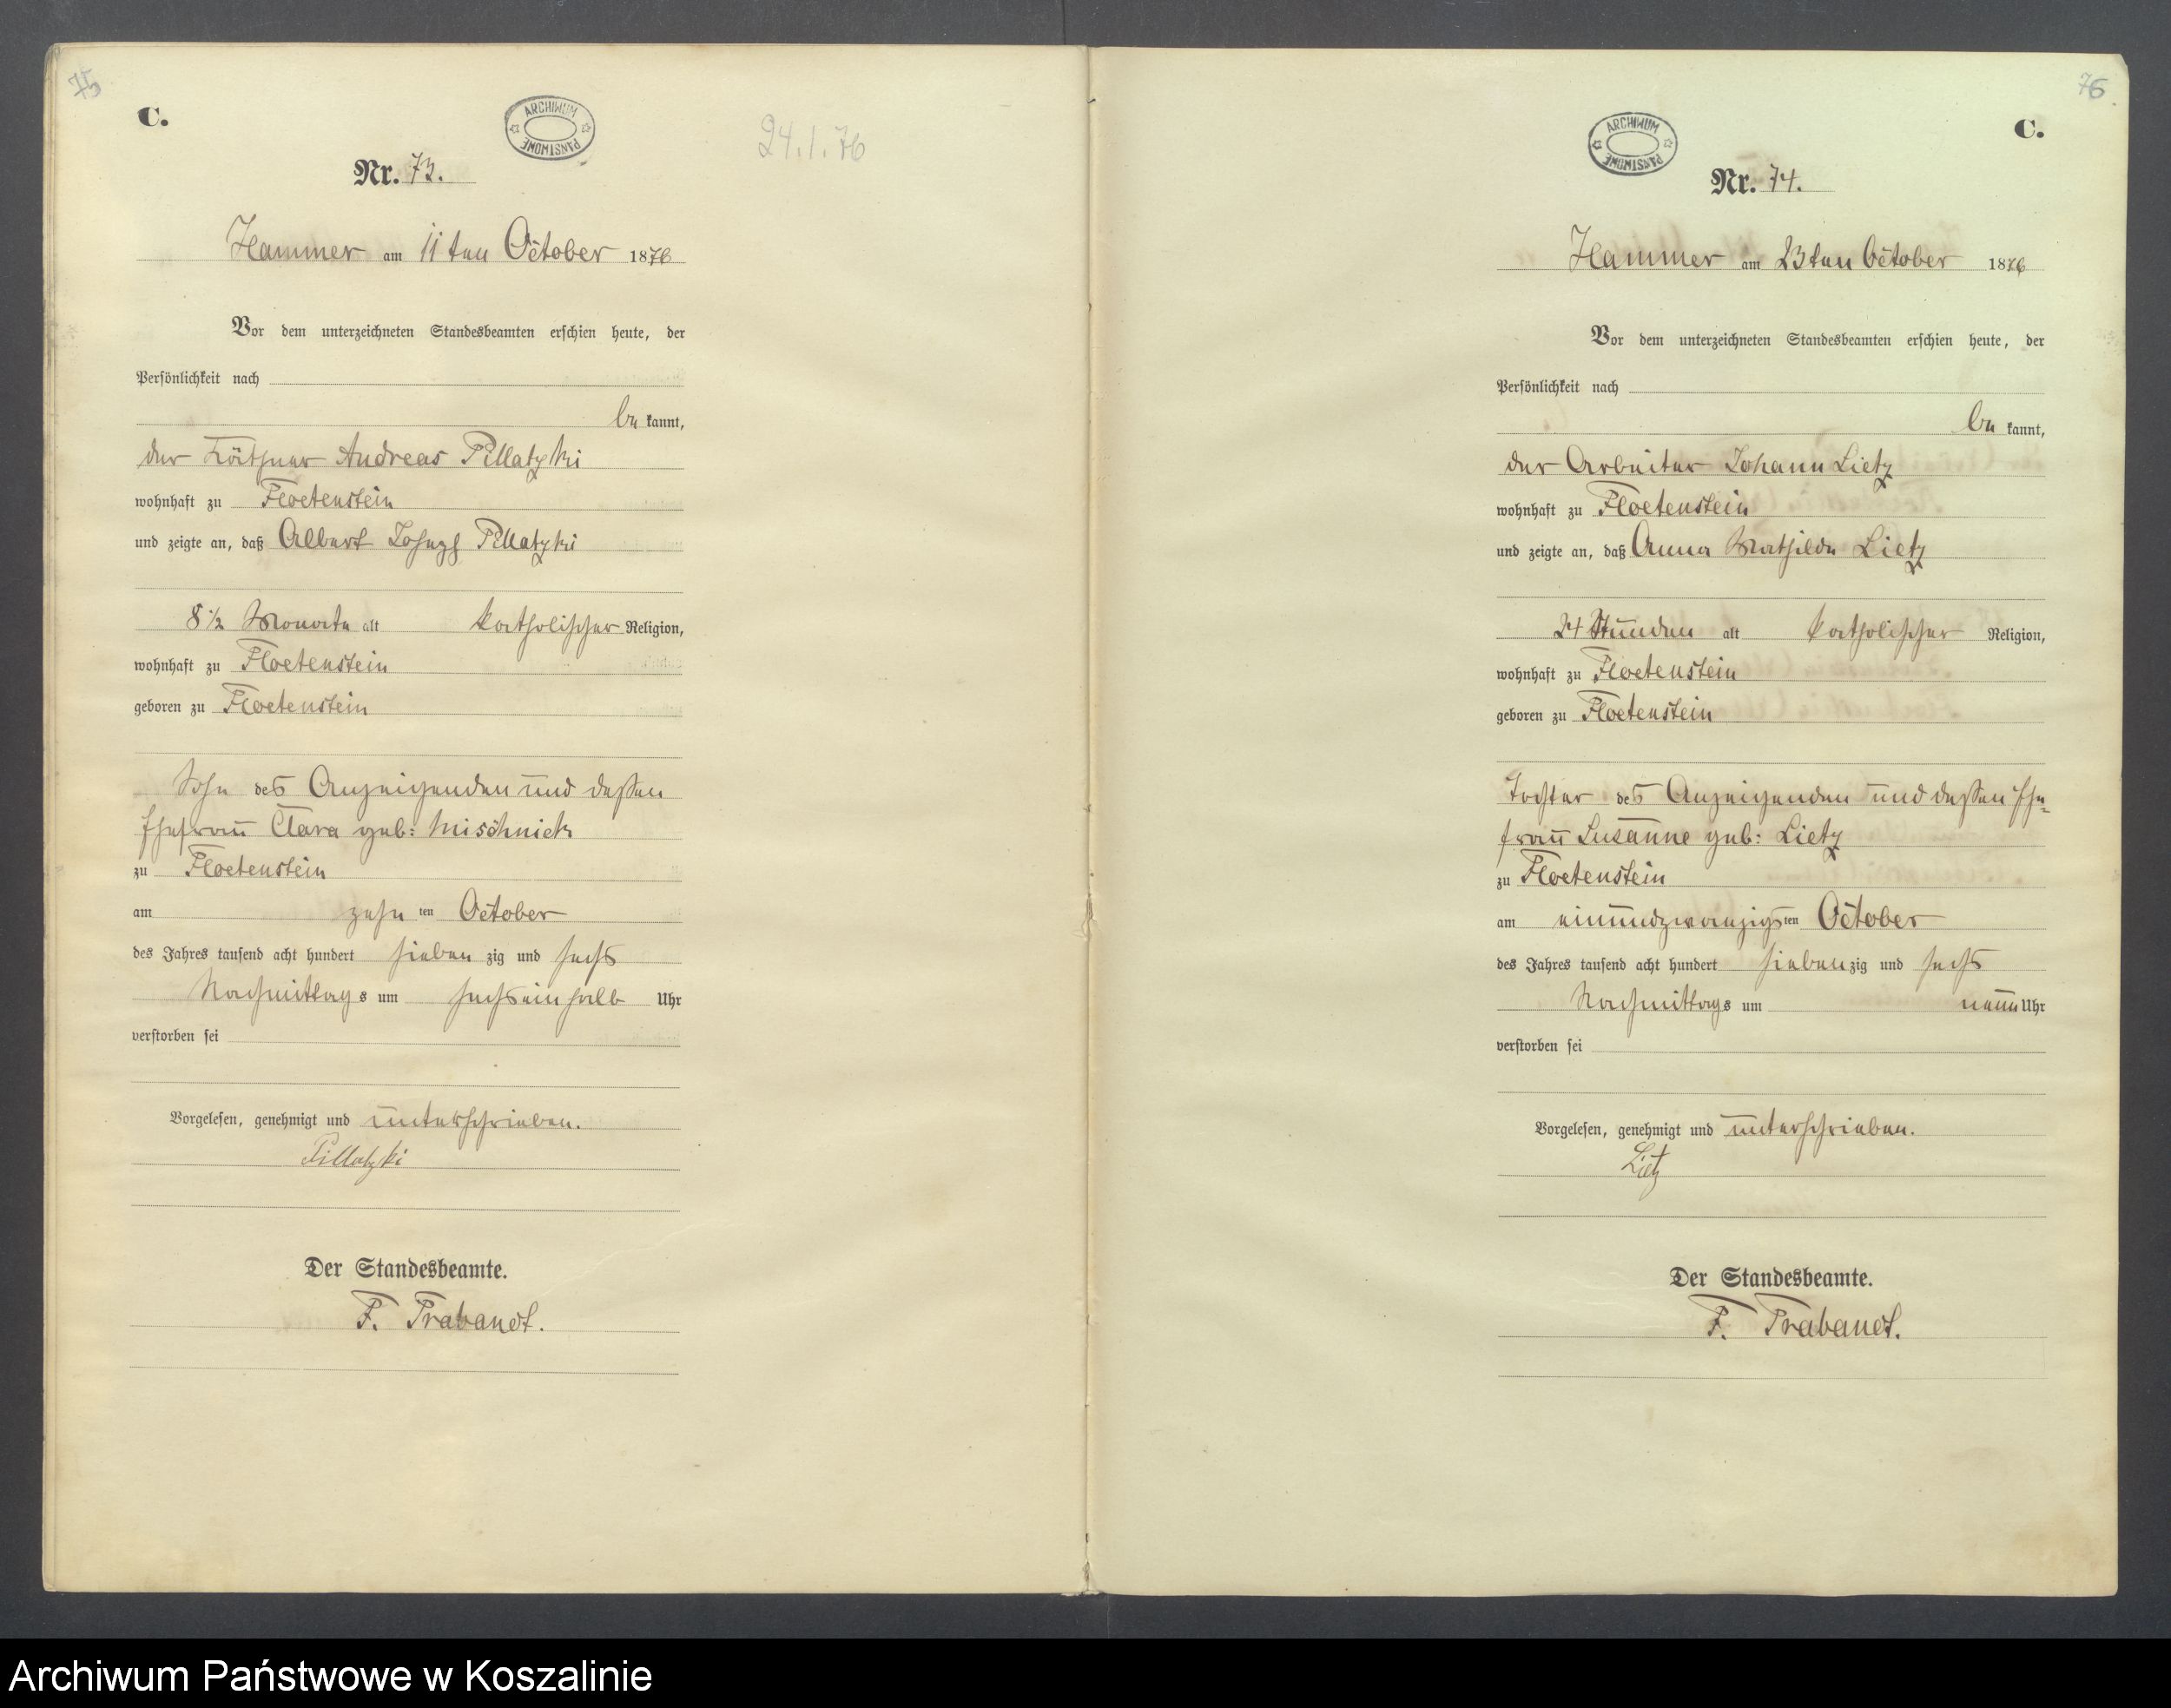 75
C.
ARCHIWUM PAŃSTWOWE
24.1.76
Nr. 73.
Hammer am 11ten October 1876
Vor dem unterzeichneten Standesbeamten erschien heute, der
Persönlichkeit nach
be kannt,
der Käthner Andreas Pillatzki
wohnhaft zu Floetenstein
und zeigte an, daß Albert Joseph Pillatzki
8 1/2 Monate alt katholischer Religion,
wohnhaft zu Floetenstein
geboren zu Floetenstein
Sohn des Anzeigenden und dessen
Ehefrau Clara geb: Mischnick
zu Floetenstein
am zehn ten October
des Jahres tausend acht hundert sieben zig und sechs
Nachmittags um sechseinhalb Uhr
verstorben sei
Vorgelesen, genehmigt und unterschrieben.
Pillatzki
Der Standesbeamte.
F. Prabandt.
76.
C.
ARCHIWUM PAŃSTWOWE
Nr. 74.
Hammer am 23ten October 1876
Vor dem unterzeichneten Standesbeamten erschien heute, der
Persönlichkeit nach
be kannt,
der Arbeiter Johann Lietz
wohnhaft zu Floetenstein
und zeigte an, daß Anna Mathilde Lietz
24 Stunden alt katholischer Religion,
wohnhaft zu Floetenstein
geboren zu Floetenstein
Tochter des Anzeigenden und dessen Ehe-
frau Susanne geb: Lietz
zu Floetenstein
am einundzwanzigsten October
des Jahres tausend acht hundert sieben zig und sechs
Nachmittags um neun Uhr
verstorben sei
Vorgelesen, genehmigt und unterschrieben.
Lietz
Der Standesbeamte.
F. Prabandt.
Archiwum Państwowe w Koszalinie